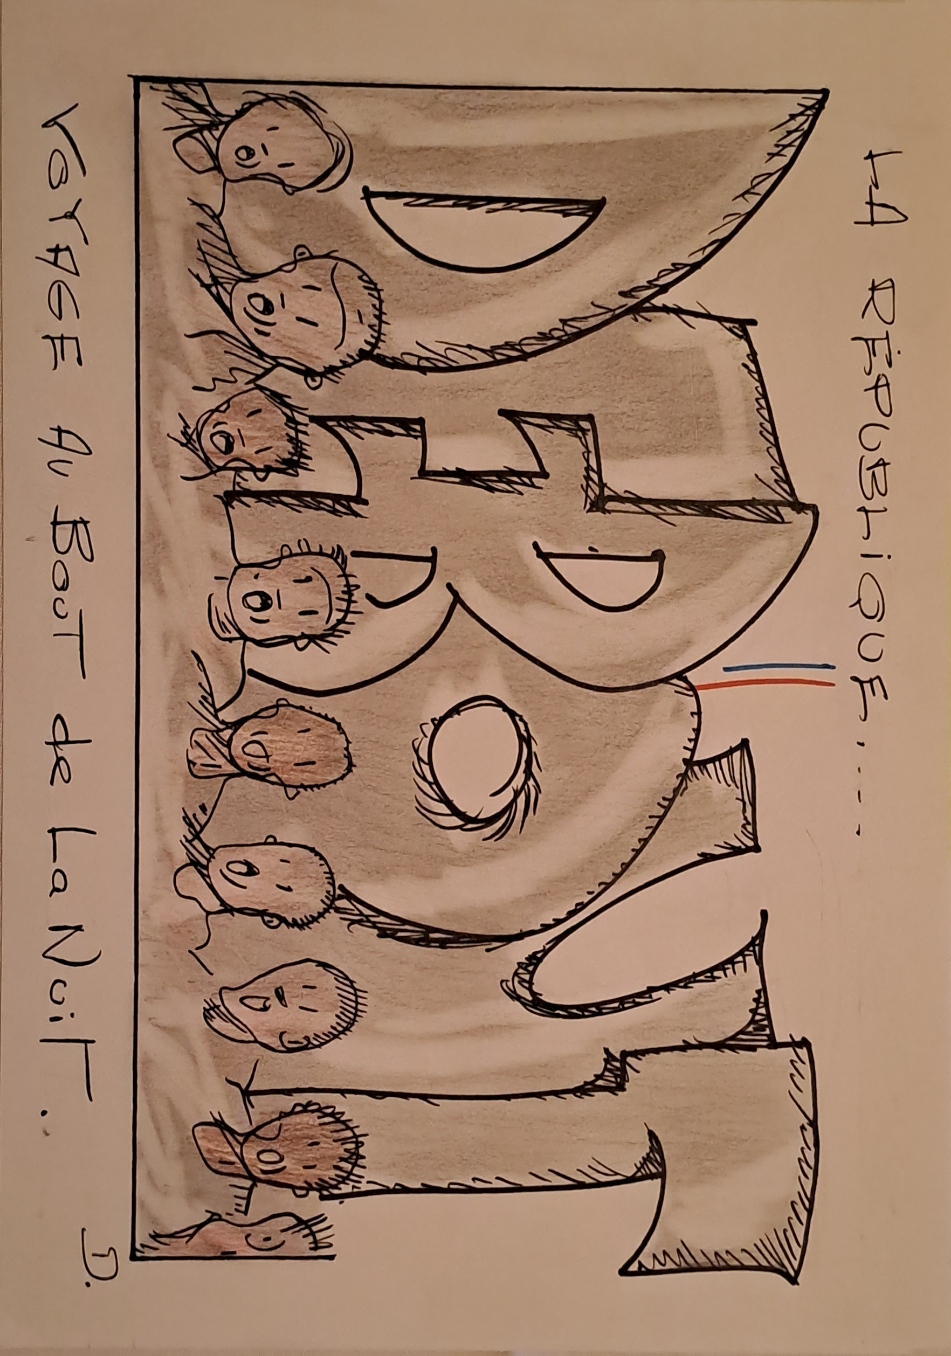 LA RÉPUBLiQUE.....
DEBOUT
VOYAGE AU BOUT de La NuiT.
D.